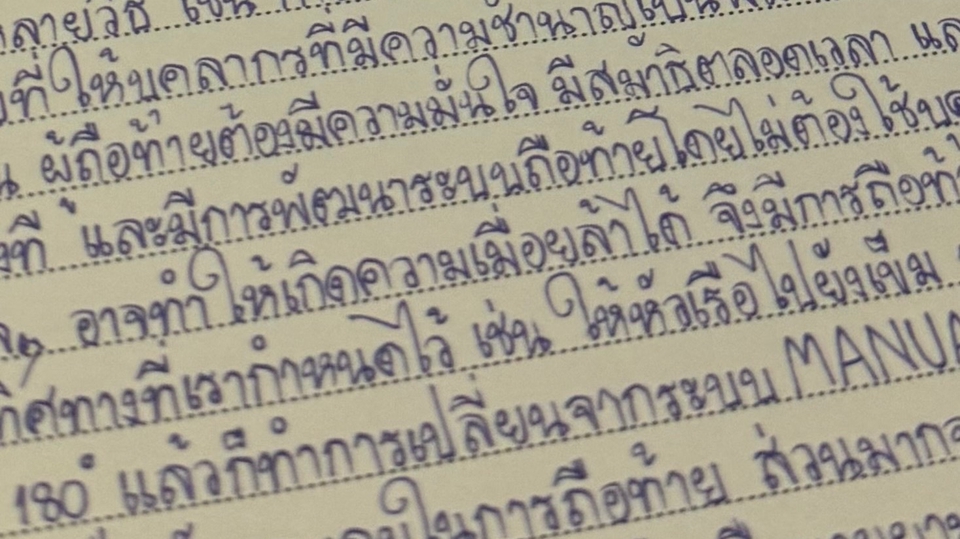 หลายวิธี เช่น
ที่ให้บุคลากรที่มีความชำนาญเป็น
ผู้ถือท้ายต้องมีความมั่นใจ มีสมาธิตลอดเวลา และ
ที่ และมีการพัฒนาระบบถือท้ายโดยไม่ต้องใช้
อาจทำให้เกิดความเมื่อยล้าได้ จึงมีการถือท้าย
ทิศทางที่เรากำหนดไว้ เช่น ให้หัวเรือไปยังเข็ม
180° แล้วก็ทำการเปลี่ยนจากระบบ MANUA
ในการถือท้าย ส่วนมาก